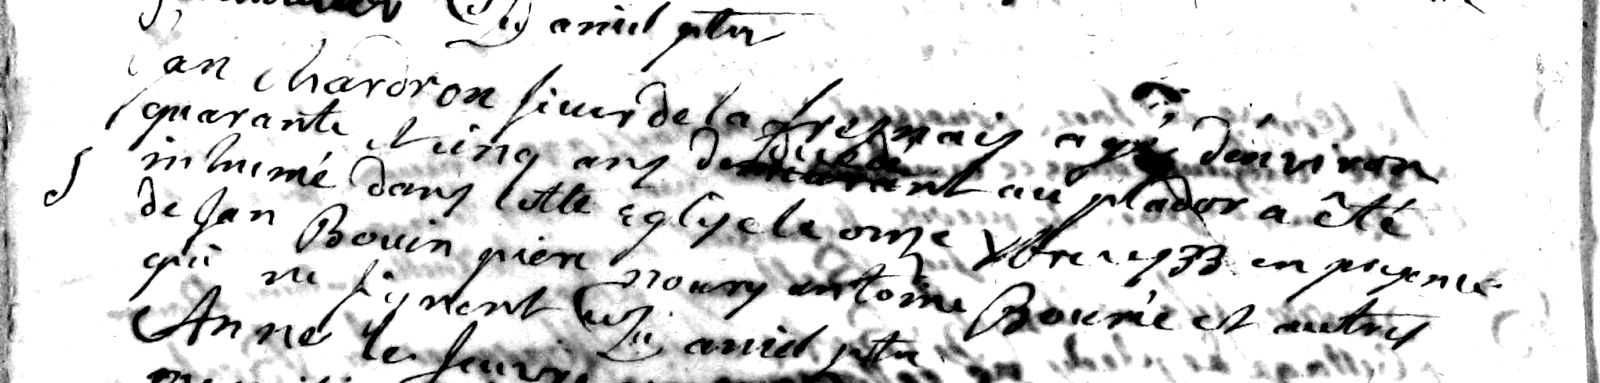 Daniel ptre
Jan Chardron sieur de la fresnais agé d'environ
quarante et cinq ans décédé au plador a êté
inhumé dans cette Eglyse le onze Xbre 1733 en presence
de Jan Bouin piere noury antoine Boumé et autres
qui ne signent
Daniel ptre
Anne le